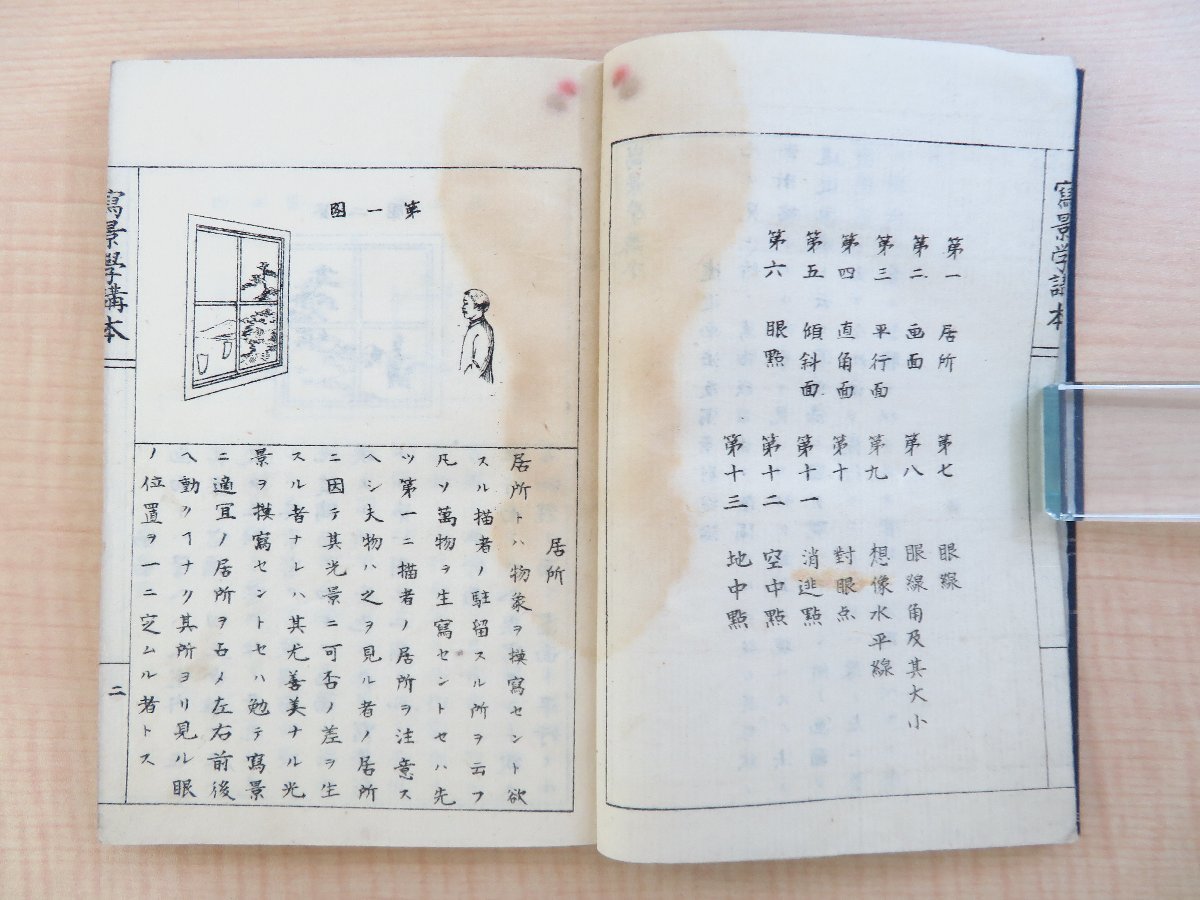 寫景学講本
第一 居所
第二 画面
第三 平行面
第四 直角面
第五 傾斜面
第六 眼點
第七 眼線
第八 眼線角及其大小
第九 想像水平線
第十 對眼点
第十一 消逃點
第十二 空中點
第十三 地中點
第一図
居所
居所トハ物象ヲ摸寫セント欲
スル描者ノ駐留スル所ヲ云フ
凡ソ萬物ヲ生寫セントセハ先
ツ第一ニ描者ノ居所ヲ注意ス
ヘシ夫物ハ之ヲ見ル者ノ居所
ニ因テ其光景ニ可否ノ差ヲ生
スル者ナレハ其尤善美ナル光
景ヲ摸寫セントセハ勉テ寫景
ニ適宜ノ居所ヲ占メ左右前後
ヘ動クヿナク其所ヨリ見ル眼
ノ位置ヲ一ニ定ムル者トス
寫景學講本
二